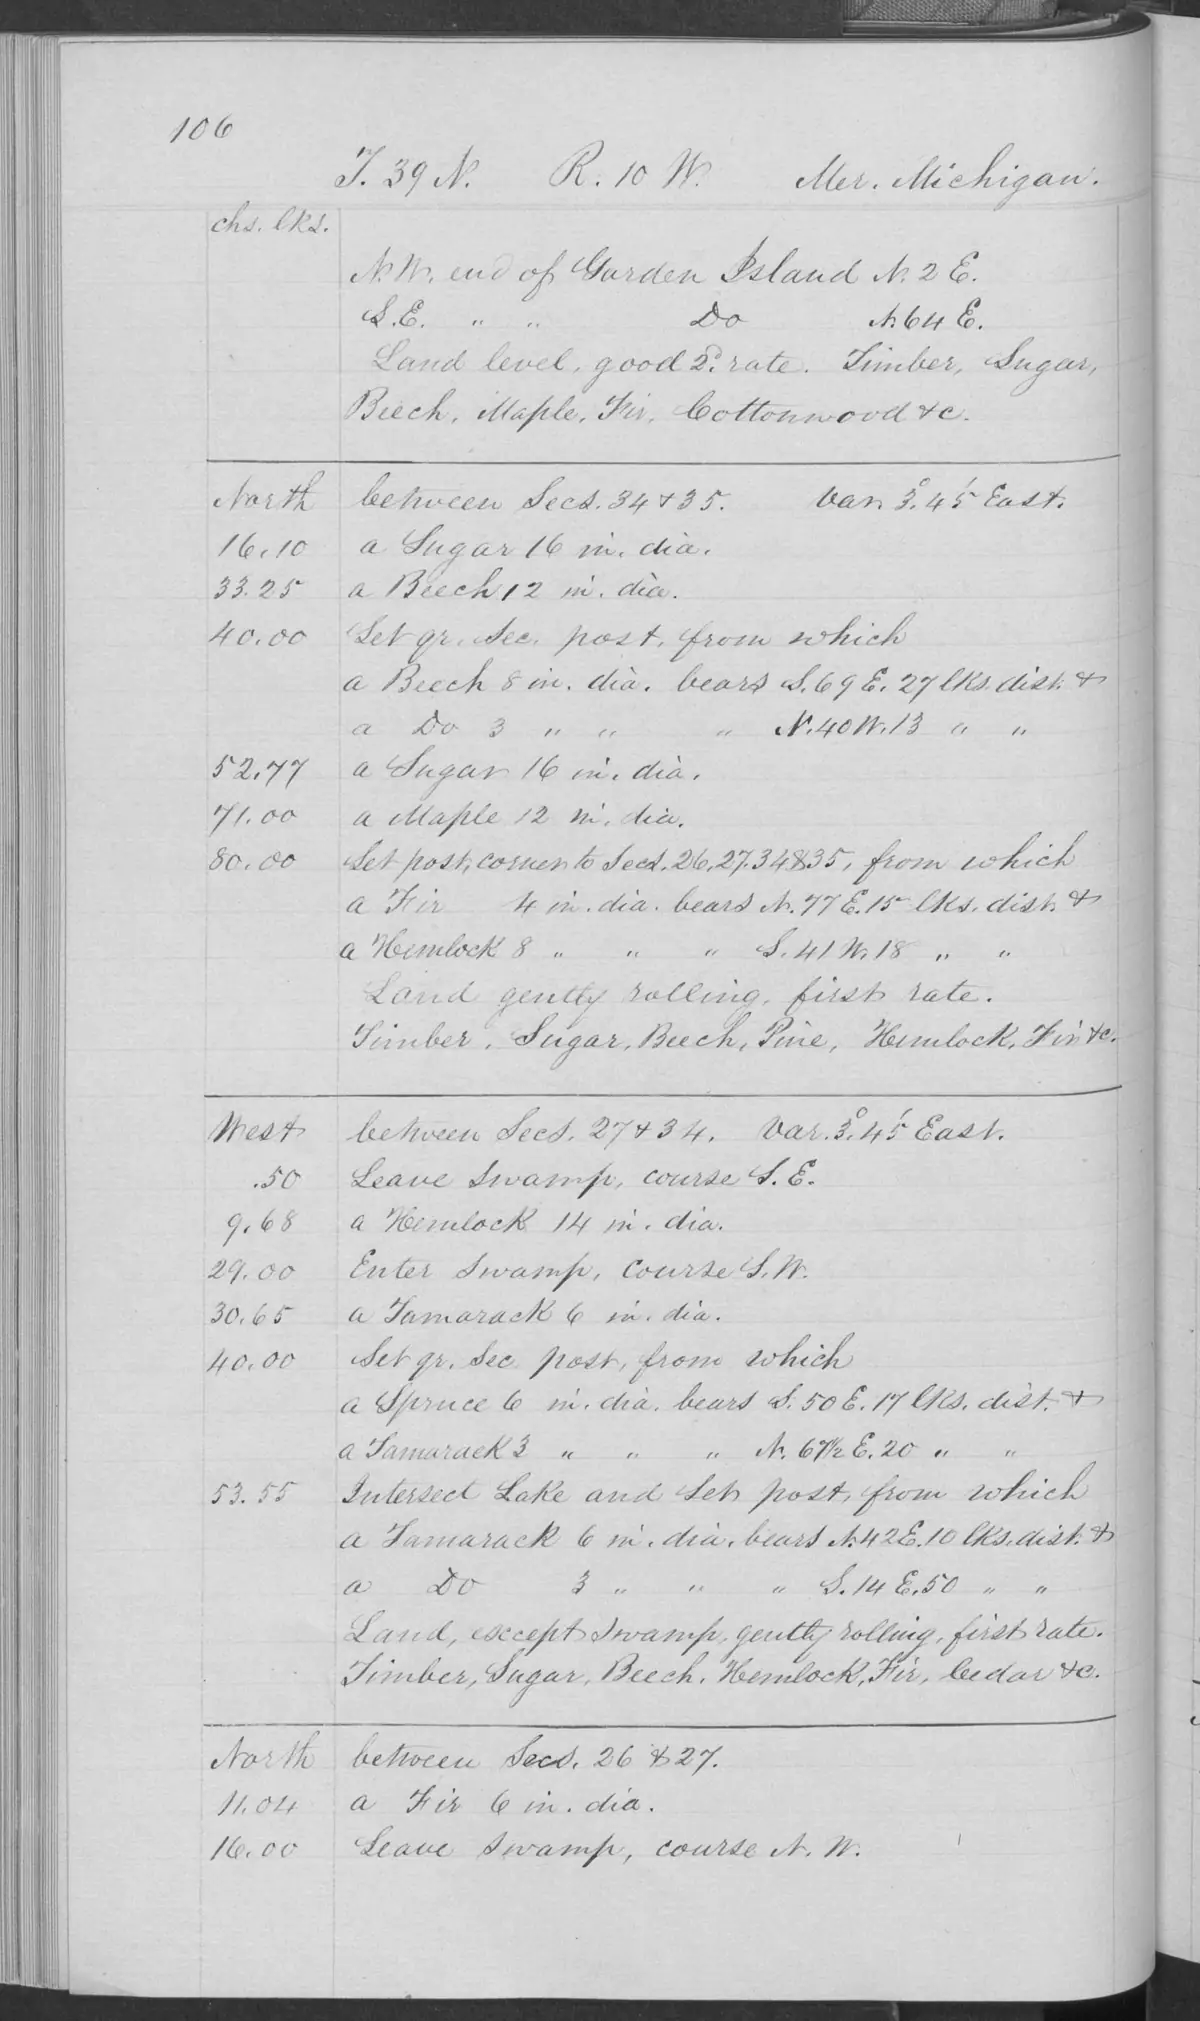 106
T. 39 N. R. 10 W. Mer. Michigan.
chs. lks.
N.W. end of Garden Island N. 2 E.
S.E. " " Do N. 64 E.
Land level, good 2d. rate. Timber, Sugar,
Beech, Maple, Fir, Cottonwood &c.
North between Secs. 34 & 35. Var. 3°. 45' East.
16.10 a Sugar 16 in. dia.
33.25 a Beech 12 in. dia.
40.00 Set qr. Sec. post, from which
a Beech 8 in. dia. bears S. 69 E. 27 lks. dist. &
a Do 3 " " " N. 40 W. 13 " "
52.77 a Sugar 16 in. dia.
71.00 a Maple 12 in. dia.
80.00 Set post, corner to Secs. 26, 27, 34 & 35, from which
a Fir 4 in. dia. bears N. 77 E. 15 lks. dist. &
a Hemlock 8 " " " S. 41 W. 18 " "
Land gently rolling, first rate.
Timber, Sugar, Beech, Pine, Hemlock, Fir &c.
West between Secs. 27 & 34. Var. 3°. 45' East.
.50 Leave Swamp, course S.E.
9.68 a Hemlock 14 in. dia.
29.00 Enter Swamp, course S.W.
30.65 a Tamarack 6 in. dia.
40.00 Set qr. Sec post, from which
a Spruce 6 in. dia. bears S. 50 E. 17 lks. dist. &
a Tamarack 3 " " " N. 67 1/2 E. 20 " "
53.55 Intersect Lake and Set post, from which
a Tamarack 6 in. dia. bears N. 42 E. 10 lks. dist. &
a Do 3 " " " S. 14 E. 50 " "
Land, except Swamp, gently rolling, first rate.
Timber, Sugar, Beech, Hemlock, Fir, Cedar &c.
North between Secs. 26 & 27.
11.04 a Fir 6 in. dia.
16.00 Leave Swamp, course N. W.